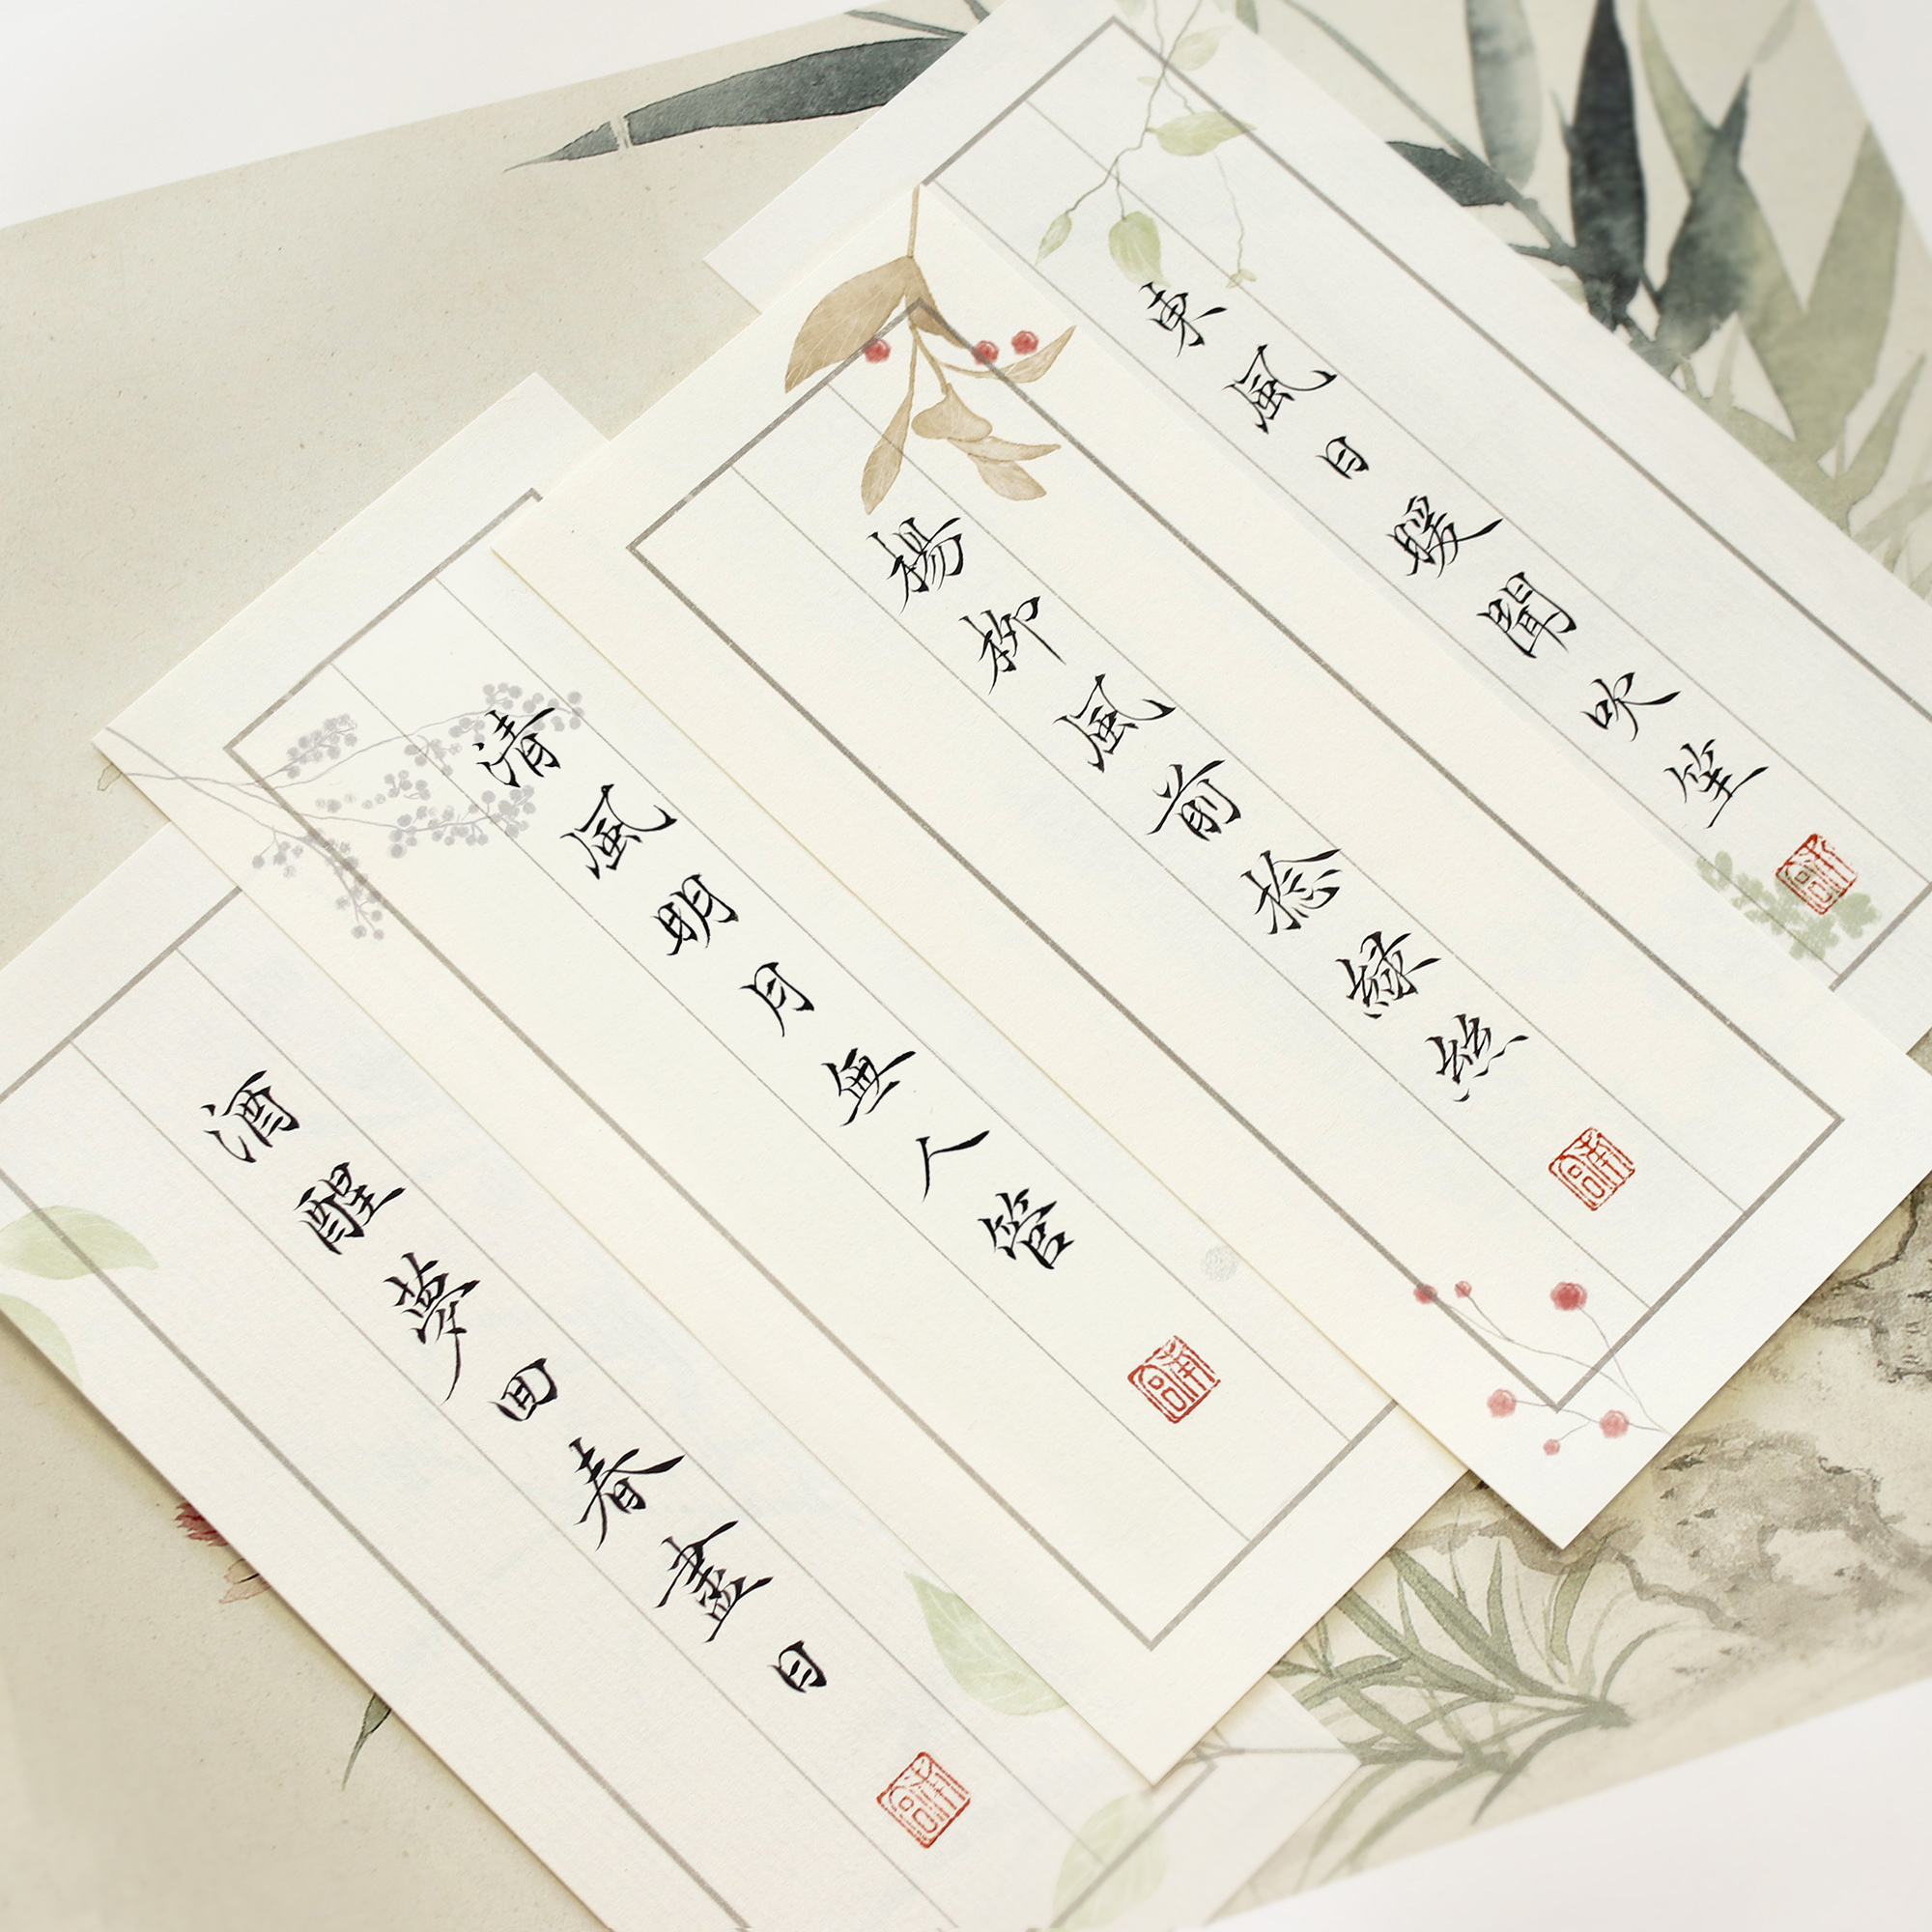 東風日暖聞吹笙
楊柳風前捻綠絲
清風明月無人管
酒醒夢回春盡日